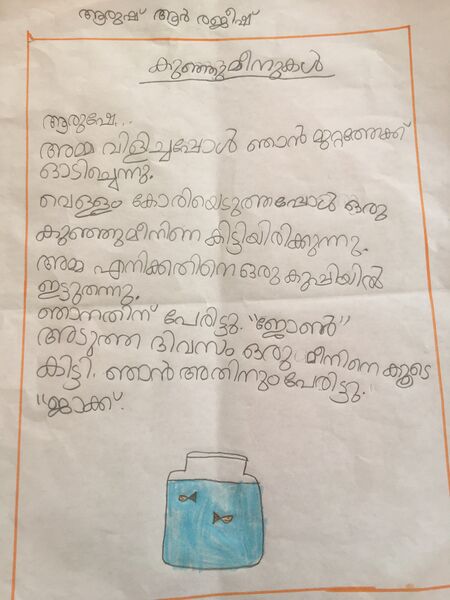 ആരുഷ് ആർ രജീഷ്
കുഞ്ഞുമീനുകൾ
ആരുഷേ...
അമ്മ വിളിച്ചപ്പോൾ ഞാൻ മുറ്റത്തേക്ക്
ഓടിച്ചെന്നു.
വെള്ളം കോരിയെടുത്തപ്പോൾ ഒരു
കുഞ്ഞുമീനിനെ കിട്ടിയിരിക്കുന്നു.
അമ്മ എനിക്കതിനെ ഒരു കുപ്പിയിൽ
ഇട്ടുതന്നു.
ഞാനതിന് പേരിട്ടു. "ജോൺ"
അടുത്ത ദിവസം ഒരു മീനിനെ ക്കൂടെ
കിട്ടി. ഞാൻ അതിനും പേരിട്ടു.
"ജാക്ക്.